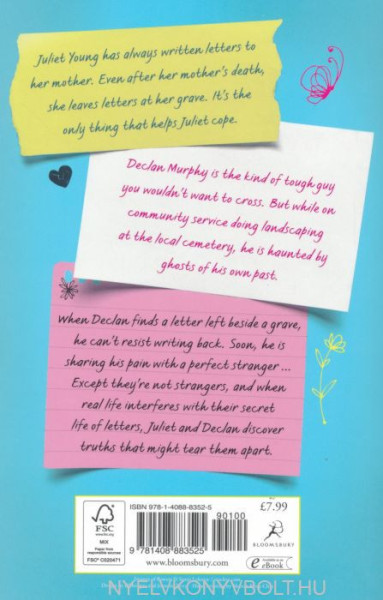 Juliet Young has always written letters to
her mother. Even after her mother's death,
she leaves letters at her grave. It's the
only thing that helps Juliet cope.
Declan Murphy is the kind of tough guy
you wouldn't want to cross. But while on
community service doing landscaping
at the local cemetery, he is haunted by
ghosts of his own past.
When Declan finds a letter left beside a grave,
he can't resist writing back. Soon, he is
sharing his pain with a perfect stranger ...
Except they're not strangers, and when
real life interferes with their secret
life of letters, Juliet and Declan discover
truths that might tear them apart.
FSC
www.fsc.org
MIX
Paper from responsible sources
FSC® C020471
ISBN 978-1-4088-8352-5
90100
9 781408 883525
www.bloomsbury.com
£7.99
BLOOMSBURY
eBook
NYELVKONYVBOLT.HU